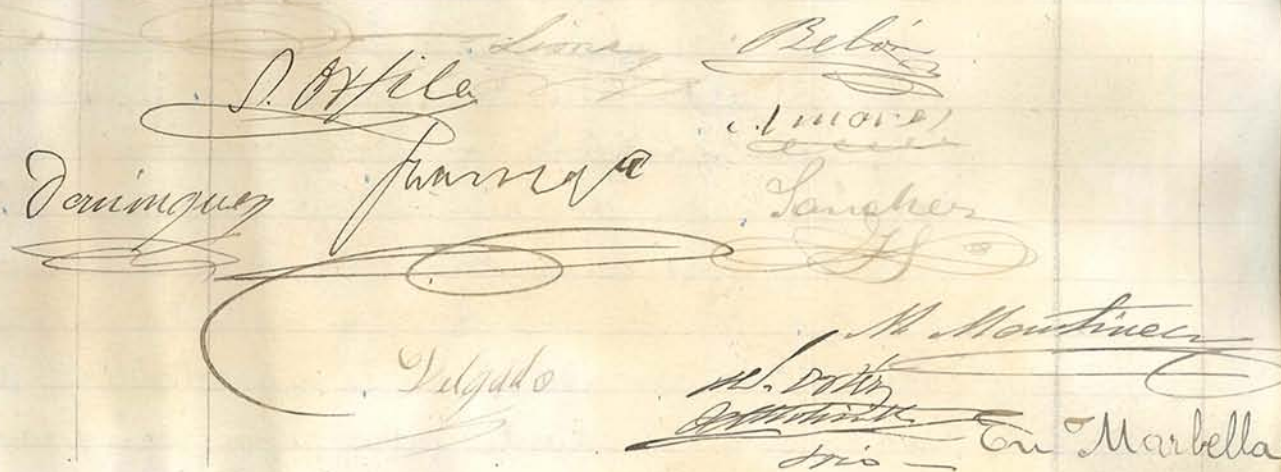 Lima
Belón
S. Orfila
Amores
Domínguez
Sánchez
M Martínez
Delgado
Ortiz
srio
En Marbella